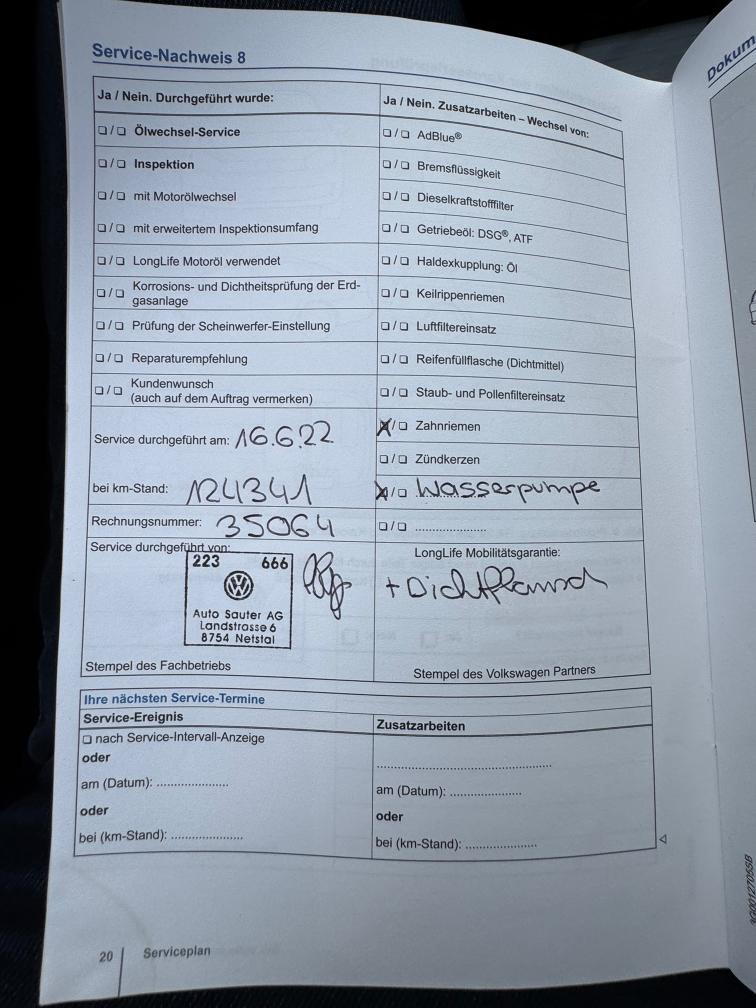 Service-Nachweis 8
Ja / Nein. Durchgeführt wurde:
❑ / ❑ Ölwechsel-Service
❑ / ❑ Inspektion
❑ / ❑ mit Motorölwechsel
❑ / ❑ mit erweitertem Inspektionsumfang
❑ / ❑ LongLife Motoröl verwendet
❑ / ❑ Korrosions- und Dichtheitsprüfung der Erd-
gasanlage
❑ / ❑ Prüfung der Scheinwerfer-Einstellung
❑ / ❑ Reparaturempfehlung
❑ / ❑ Kundenwunsch
(auch auf dem Auftrag vermerken)
Service durchgeführt am: 16.6.22
bei km-Stand: 124341
Rechnungsnummer: 35064
Service durchgeführt von:
223 666
Auto Sauter AG
Landstrasse 6
8754 Netstal
Stempel des Fachbetriebs
Ja / Nein. Zusatzarbeiten – Wechsel von:
❑ / ❑ AdBlue®
❑ / ❑ Bremsflüssigkeit
❑ / ❑ Dieselkraftstofffilter
❑ / ❑ Getriebeöl: DSG®, ATF
❑ / ❑ Haldexkupplung: Öl
❑ / ❑ Keilrippenriemen
❑ / ❑ Luftfiltereinsatz
❑ / ❑ Reifenfüllflasche (Dichtmittel)
❑ / ❑ Staub- und Pollenfiltereinsatz
X / ❑ Zahnriemen
❑ / ❑ Zündkerzen
X / ❑ Wasserpumpe
❑ / ❑ .....................
LongLife Mobilitätsgarantie:
+ Dichtflansch
Stempel des Volkswagen Partners
Ihre nächsten Service-Termine
Service-Ereignis
❑ nach Service-Intervall-Anzeige
oder
am (Datum): .....................
oder
bei (km-Stand): .....................
Zusatzarbeiten
.....................................................
am (Datum): .....................
oder
bei (km-Stand): .....................
20 Serviceplan
Dokum